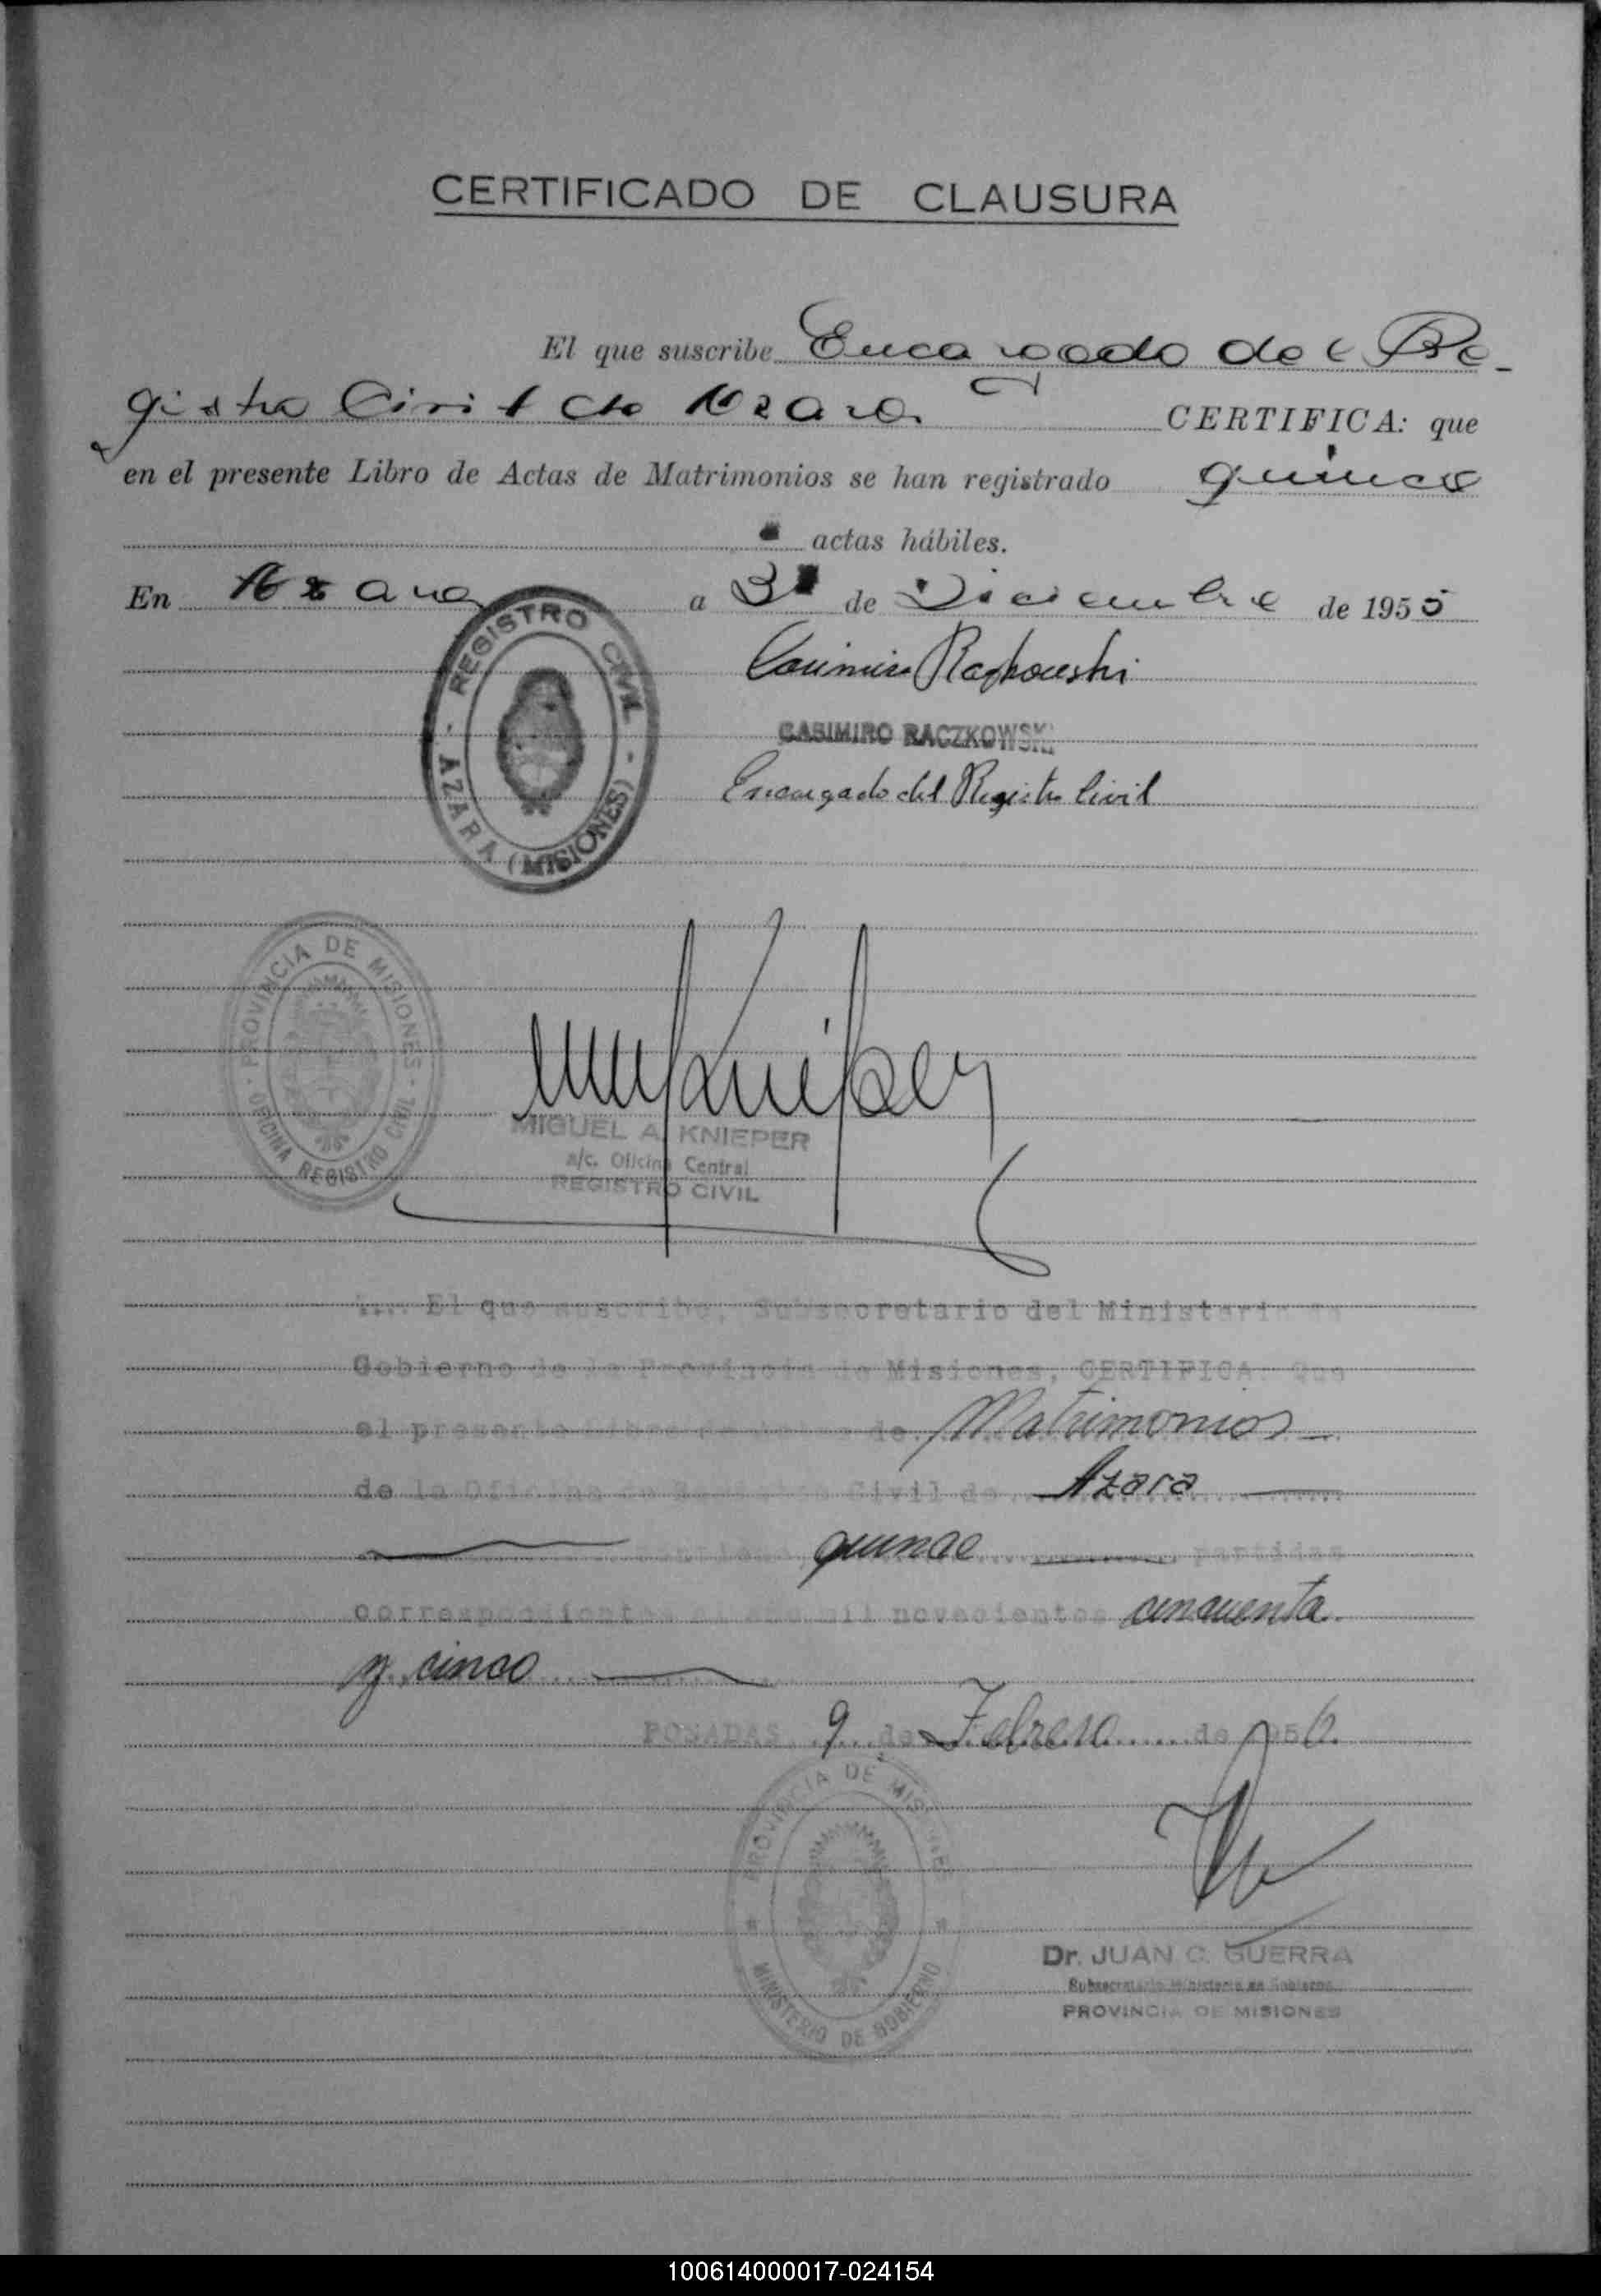 CERTIFICADO DE CLAUSURA
El que suscribe Encargado del Re-
gistro Civil de Azara CERTIFICA: que
en el presente Libro de Actas de Matrimonios se han registrado quince
actas hábiles.
En Azara a 31 de Diciembre de 1955
Casimiro Raczkowski
CASIMIRO RACZKOWSKI
Encargado del Registro Civil
REGISTRO CIVIL - AZARA (MISIONES) -
PROVINCIA DE MISIONES - OFICINA REGISTRO CIVIL -
MIGUEL A. KNIEPER
a/c. Oficina Central
REGISTRO CIVIL
El que suscribe, Subsecretario del Ministerio de
Gobierno de la Provincia de Misiones, CERTIFICA: Que
el presente Libro de de Matrimonios
de la Oficina de Registro Civil de Azara
contiene quince partidas
correspondientes al año mil novecientos cincuenta
y cinco
POSADAS, 9 de Febrero de 1956.
PROVINCIA DE MISIONES
MINISTERIO DE GOBIERNO
Dr. JUAN C. GUERRA
Subsecretario Ministerio de Gobierno
PROVINCIA DE MISIONES
100614000017-024154